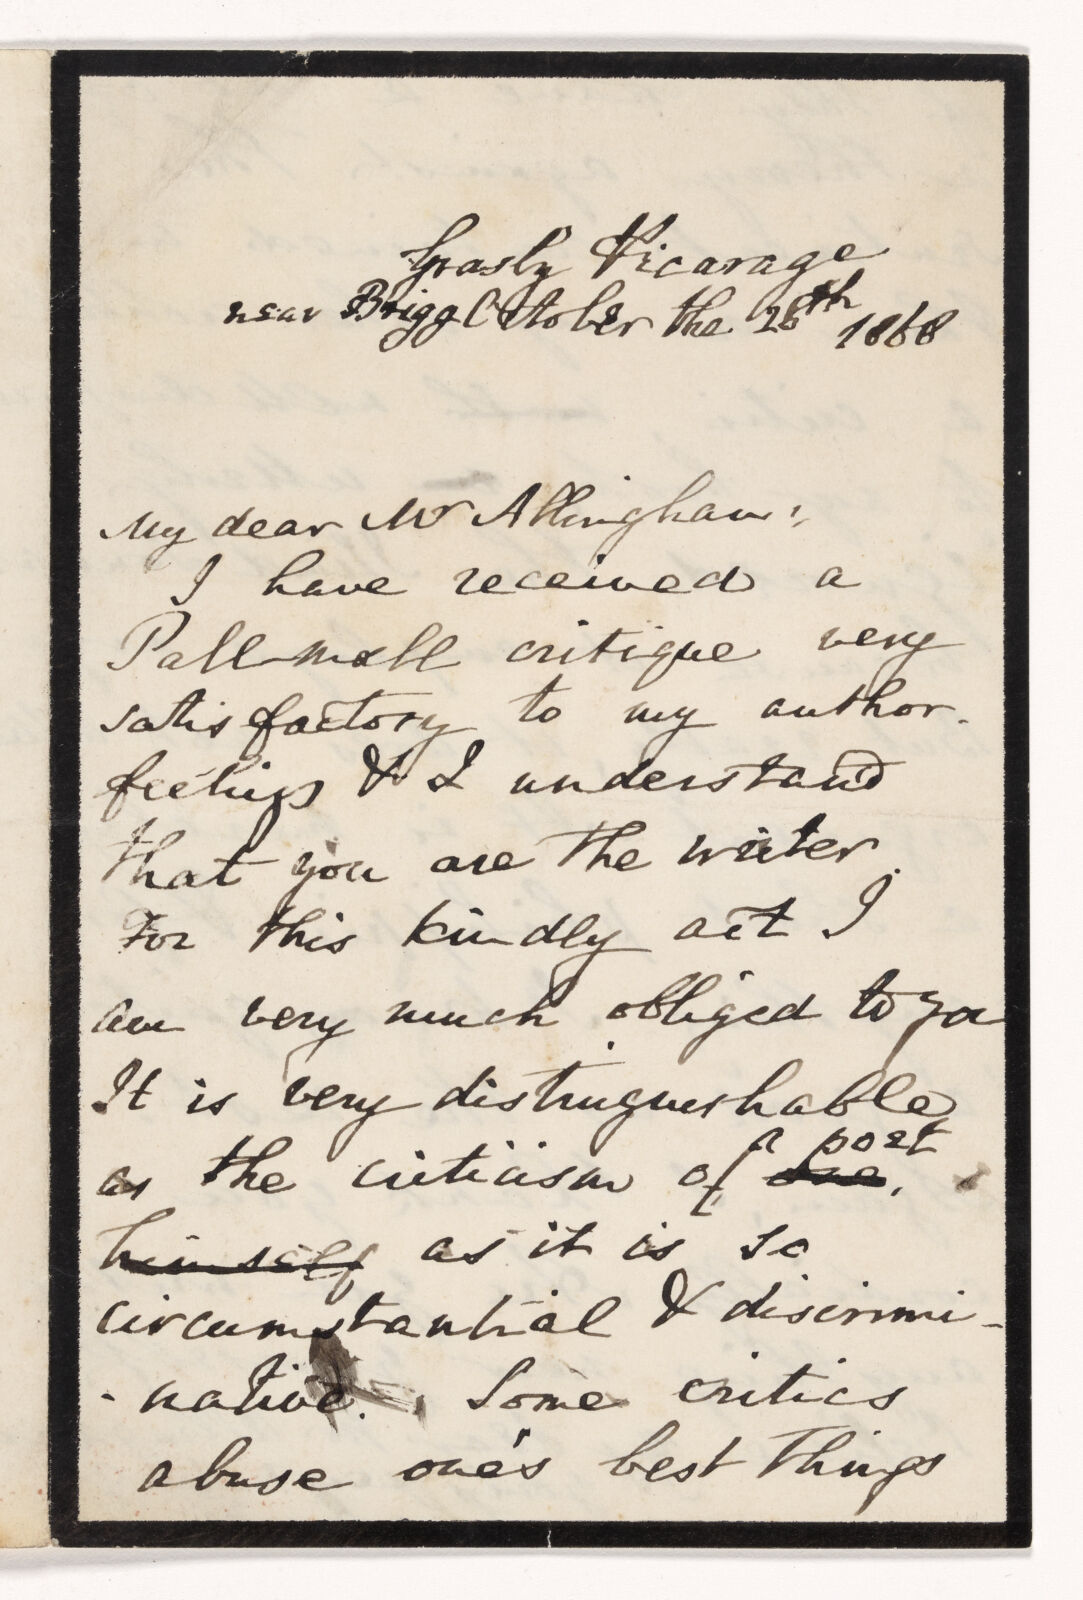 Grasby Vicarage
near Brigg October the 26th 1868
My dear Mr Allingham,
I have received a
Pall-mall critique very
satisfactory to my author-
feelings & I understand
that you are the writer
For this kindly act I
am very much obliged to you
It is very distinguishable
a poet
as the criticism of one,
himself as it is so
circumstantial & discrimi-
-native. Some critics
abuse one's best things